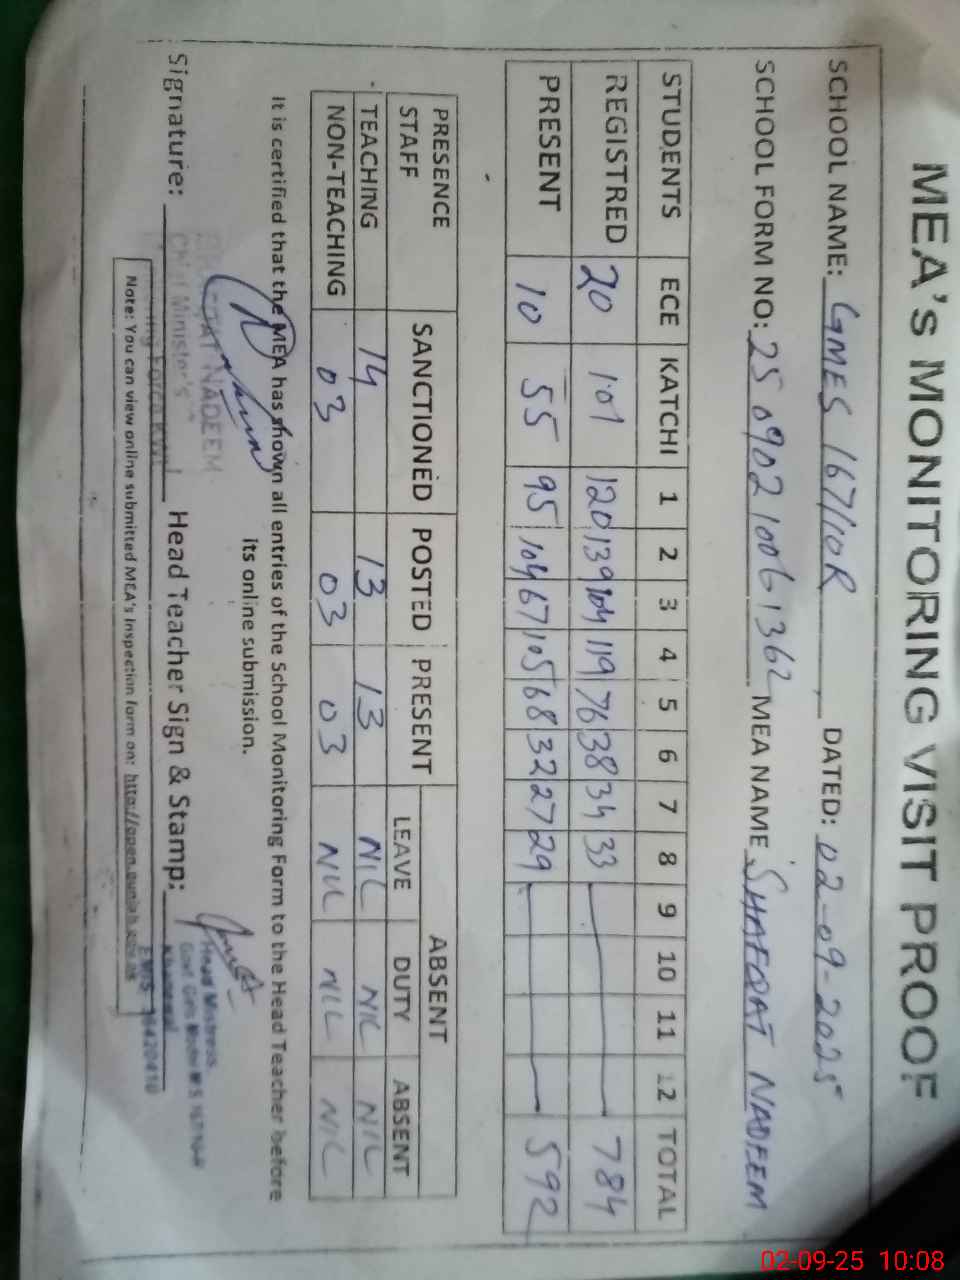 MEA's MONITORING VISIT PROOF
SCHOOL NAME: GMES 167/10R DATED: 02-09-2025
SCHOOL FORM NO: 25 0902 1006 1362 MEA NAME SHAFQAT NADEEM
STUDENTS ECE KATCHI 1 2 3 4 5 6 7 8 9 10 11 12 TOTAL
REGISTRED 20 101 120 139 104 119 76 38 34 33 784
PRESENT 10 55 95 104 67 105 68 32 27 29 592
PRESENCE STAFF SANCTIONED POSTED PRESENT ABSENT
LEAVE DUTY ABSENT
TEACHING 14 13 13 NIL NIL NIL
NON-TEACHING 03 03 03 NIL NIL NIL
It is certified that the MEA has shown all entries of the School Monitoring Form to the Head Teacher before
its online submission.
NADEEM
Chief Minister's
Signature: Head Teacher Sign & Stamp:
Head Mistress
Khanewal
Note: You can view online submitted MEA's Inspection form on: http://open.punjab.gov.pk
02-09-25 10:08